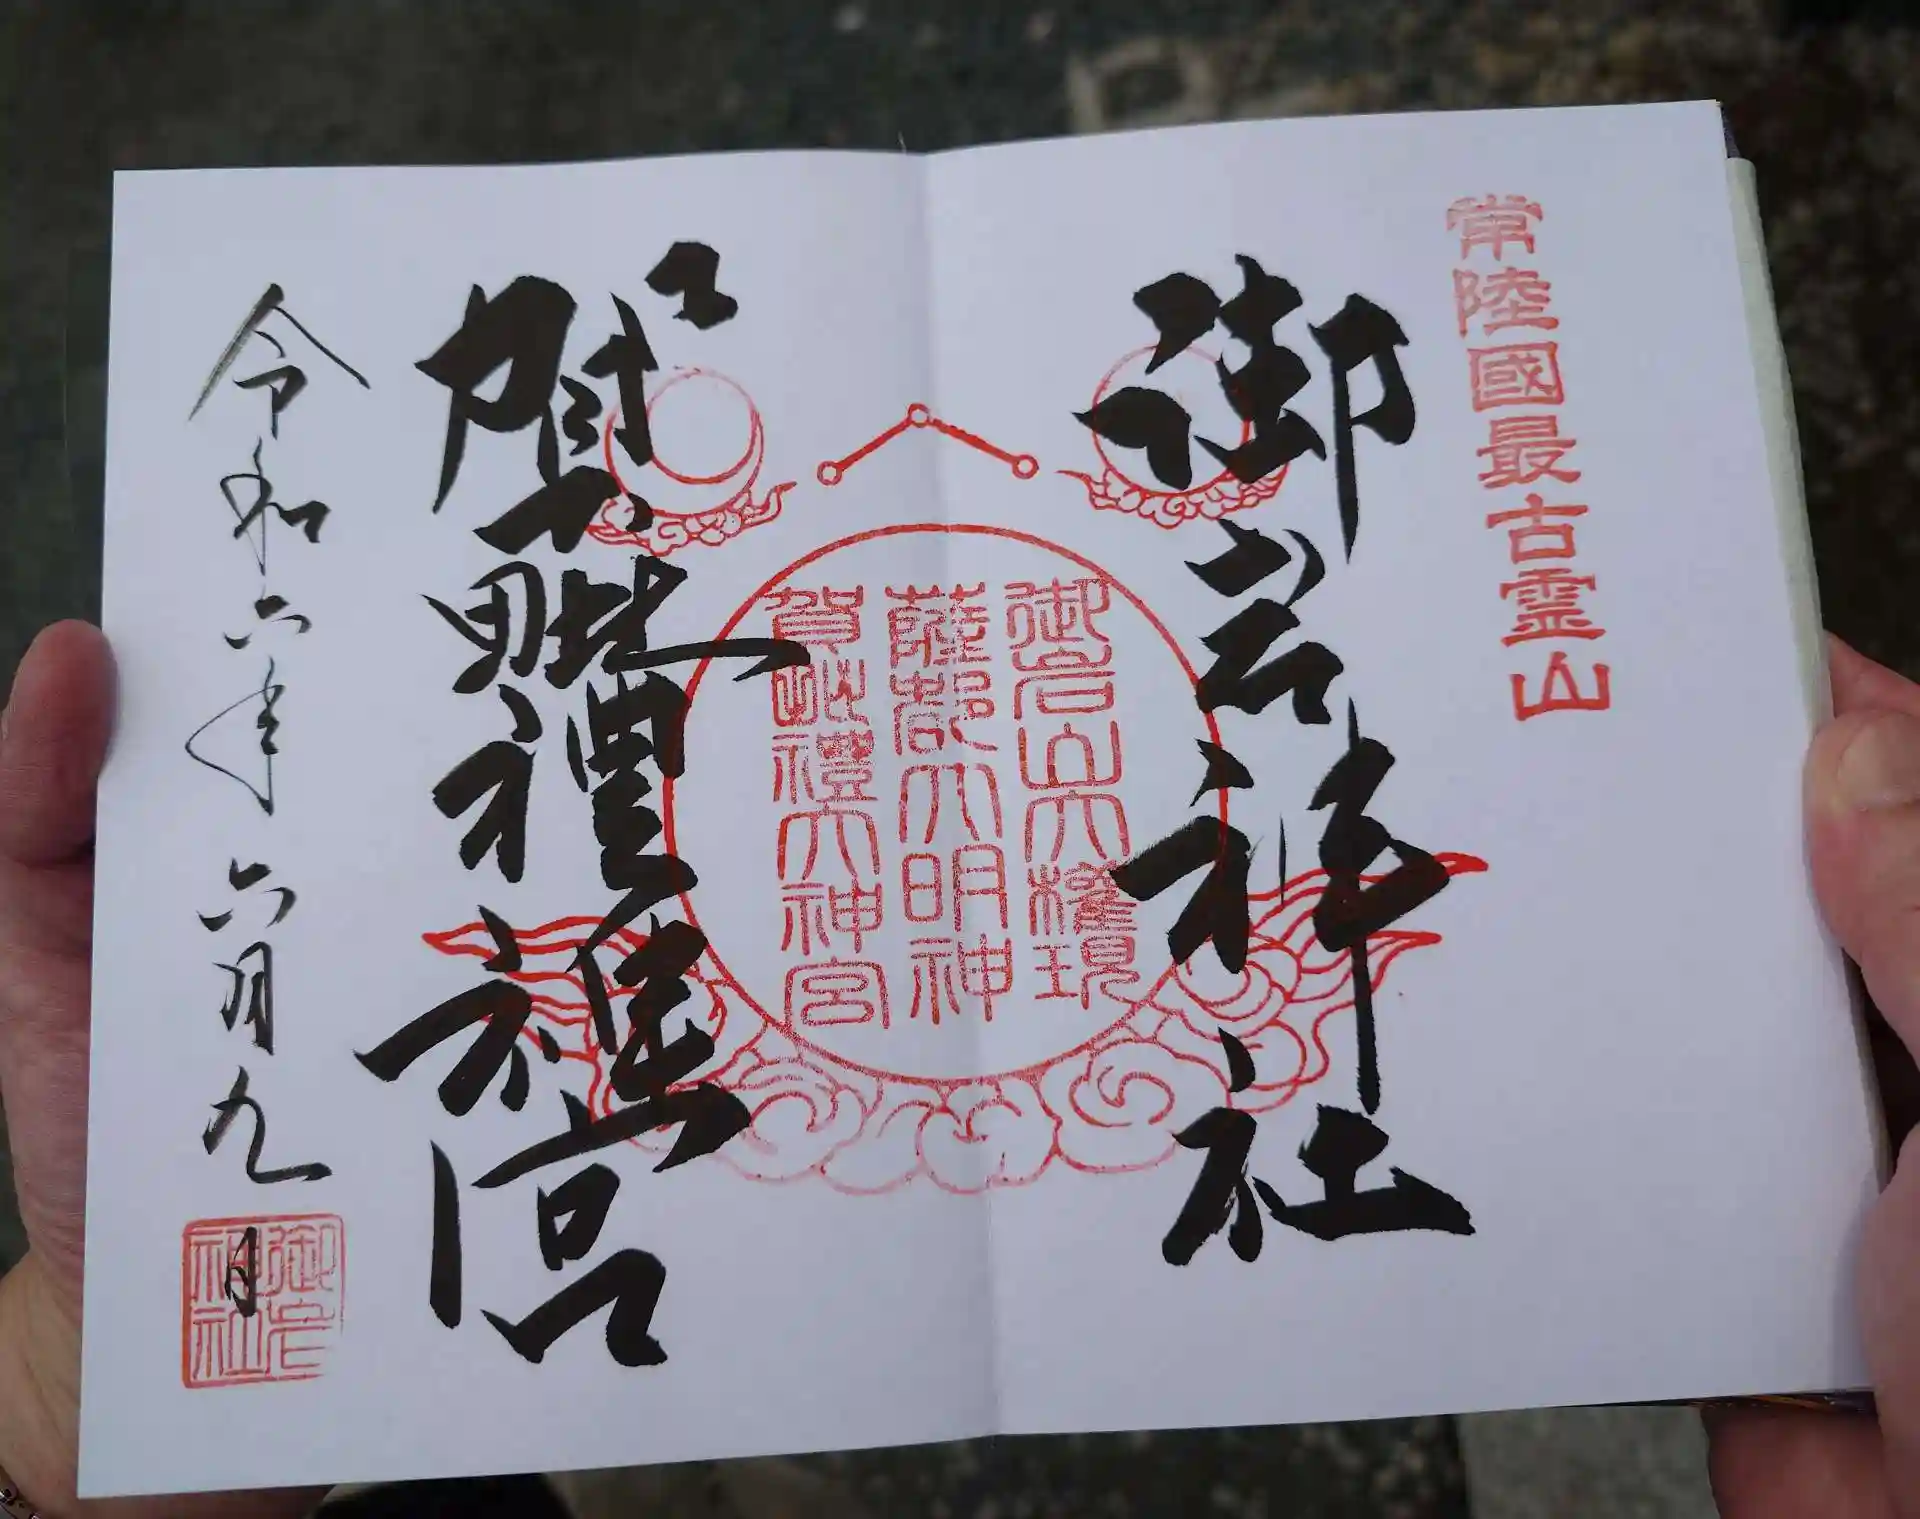 常陸國最古霊山
御岩神社
御岩山大権現
薩都大明神
賀毗禮大神宮
賀毗禮神宮
令和六年六月九日
御岩神社